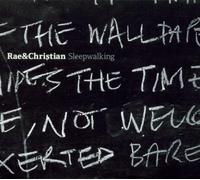 F THE WALLPAPE
Rae&Christian Sleepwalking
HIDES THE TIME
E, NOT WELCO
EXERTED BARE